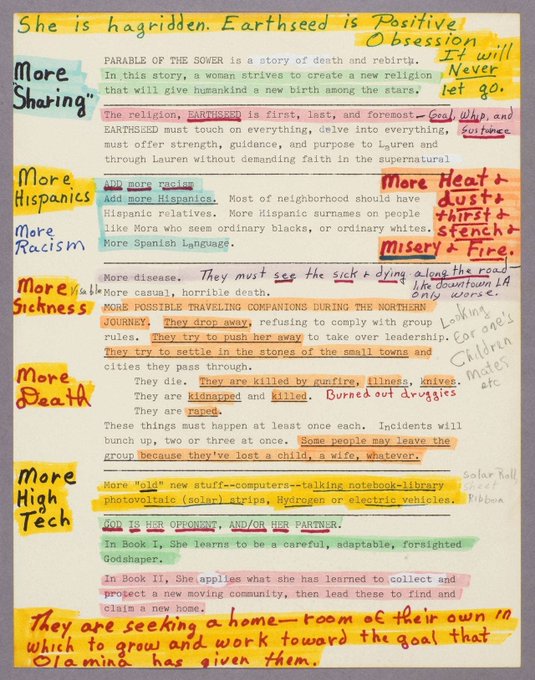 She is hagridden. Earthseed is Positive
Obsession
It will
Never
let go.
More
"Sharing"
PARABLE OF THE SOWER is a story of death and rebirth.
In this story, a woman strives to create a new religion
that will give humankind a new birth among the stars.
The religion, EARTHSEED is first, last, and foremost— Goal, Whip, and
Sustance
EARTHSEED must touch on everything, delve into everything,
must offer strength, guidance, and purpose to Lauren and
through Lauren without demanding faith in the supernatural
More
Hispanics
More
Racism
ADD more racism
Add more Hispanics. Most of neighborhood should have
Hispanic relatives. More Hispanic surnames on people
like Mora who seem ordinary blacks, or ordinary whites.
More Spanish Language.
More Heat &
dust &
thirst &
stench &
misery & Fire.
More Visable
Sickness
More disease. They must see the sick & dying along the road
like downtown LA
only worse.
More casual, horrible death.
MORE POSSIBLE TRAVELING COMPANIONS DURING THE NORTHERN
JOURNEY. They drop away, refusing to comply with group
rules. They try to push her away to take over leadership.
They try to settle in the stones of the small towns and
cities they pass through.
Looking
for one's
Children
mates
etc
More
Death
They die. They are killed by gunfire, illness, knives.
They are kidnapped and killed. Burned out druggies
They are raped.
These things must happen at least once each. Incidents will
bunch up, two or three at once. Some people may leave the
group because they've lost a child, a wife, whatever.
More
High
Tech
More "old" new stuff--computers--talking notebook-library
photovoltaic (solar) strips, Hydrogen or electric vehicles.
Solar Roll
sheet
Ribbon
GOD IS HER OPPONENT, AND/OR HER PARTNER.
In Book I, She learns to be a careful, adaptable, forsighted
Godshaper.
In Book II, She applies what she has learned to collect and
protect a new moving community, then lead these to find and
claim a new home.
They are seeking a home— room of their own in
which to grow and work toward the goal that
Olamina has given them.